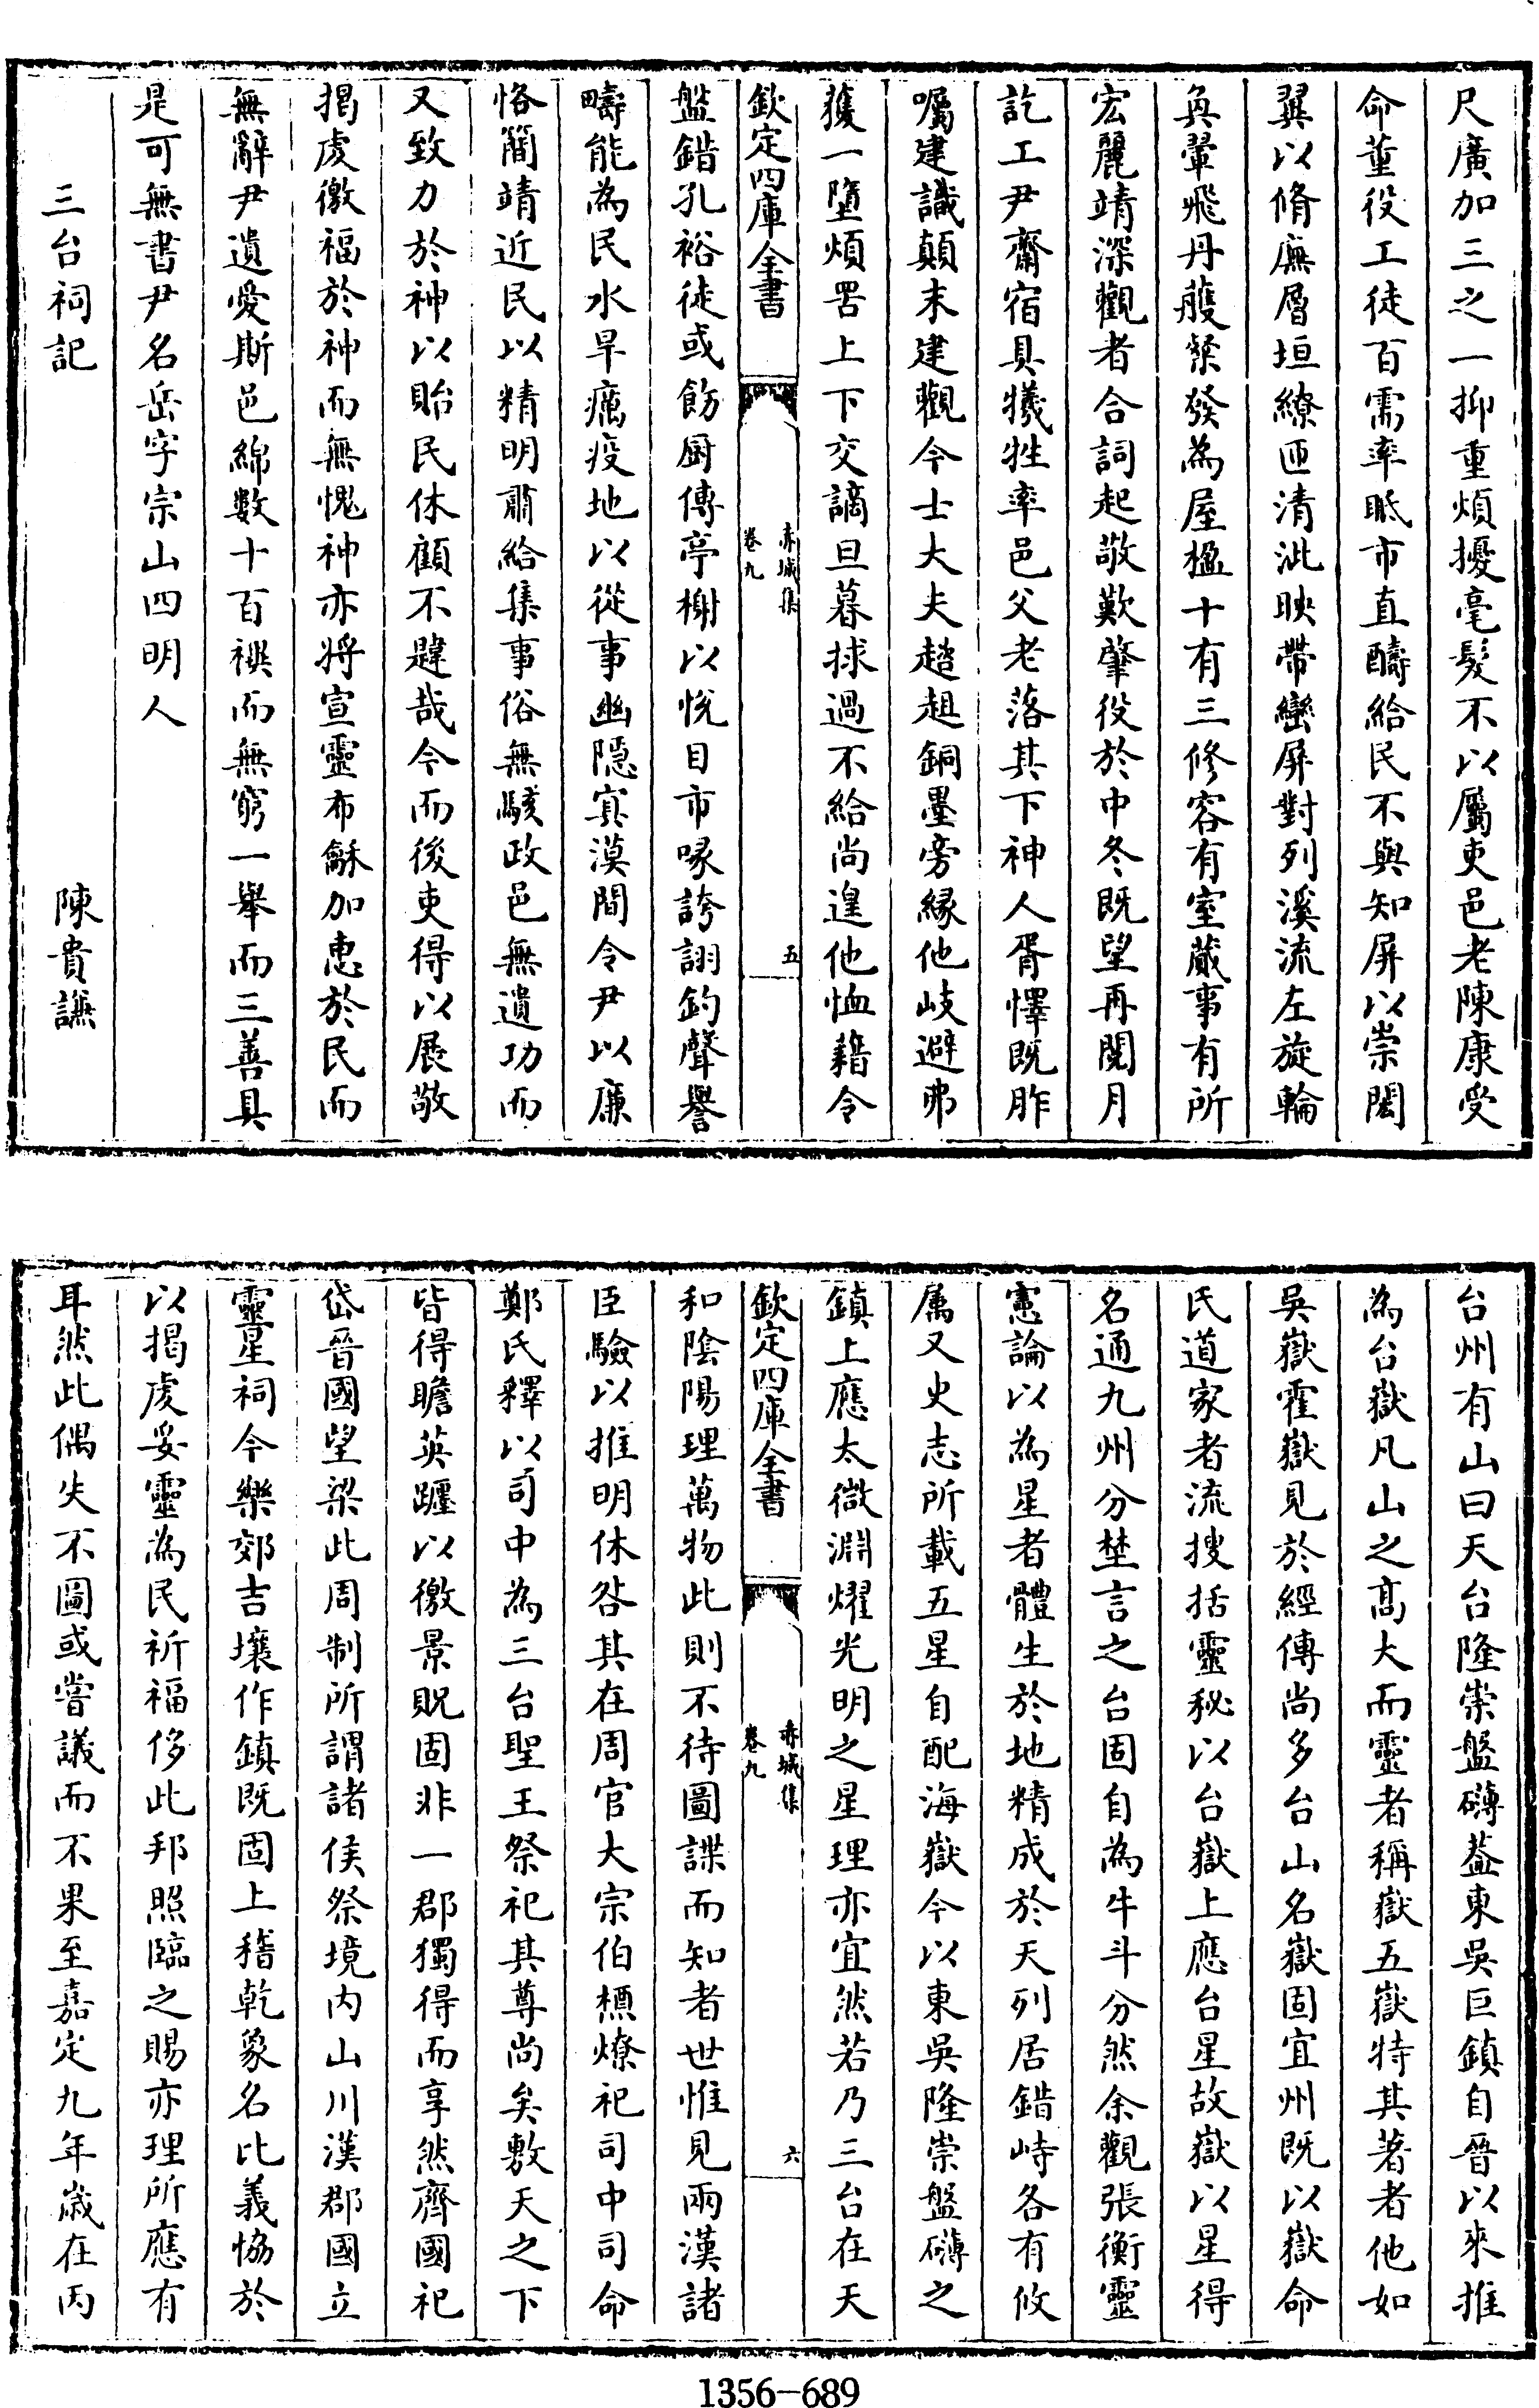 尺廣加三之一抑重煩擾毫髮不以屬吏邑老陳康受
命董役工徒百需率眡市直酬給民不與知屏以崇閎
翼以脩廡層垣繚匝清泚映帶巒屏對列溪流左旋輪
奐翬飛丹雘縏發為屋楹十有三修容有室蕆事有所
宏麗靖深觀者合詞起敬歎肇役於中冬既望再閱月
訖工尹齋宿具犧牲率邑父老落其下神人胥懌既胙
囑建識顛末建觀今士大夫趦趄銅墨旁縁他岐避弗
獲一墮煩罟上下交謫旦暮捄過不給尚遑他恤藉令
欽定四庫全書
赤城集
卷九
五
盤錯孔裕徒或飭厨傳亭榭以悅目市喙誇詡釣聲譽
疇能為民水旱癘疫地以從事幽隠寘漠間令尹以廉
恪簡靖近民以精明肅給集事俗無駭政邑無遺功而
又致力於神以貽民休顧不韙哉今而後吏得以展敬
揭虔徼福於神而無愧神亦將宣靈布龢加惠於民而
無辭尹遺愛斯邑綿數十百禩而無窮一舉而三善具
是可無書尹名岳字宗山四明人
三台祠記　　陳貴謙
台州有山曰天台隆崇盤礴葢東吳巨鎮自晉以來推
為台嶽凡山之髙大而靈者稱嶽五嶽特其著者他如
吳嶽霍嶽見於經傳尚多台山名嶽固宜州既以嶽命
氏道家者流搜括靈秘以台嶽上應台星故嶽以星得
名通九州分埜言之台固自為牛斗分然余觀張衡靈
憲論以為星者體生於地精成於天列居錯峙各有攸
屬又史志所載五星自配海嶽今以東吳隆崇盤礴之
鎮上應太微淵燿光明之星理亦宜然若乃三台在天
欽定四庫全書
赤城集
卷九
六
和陰陽理萬物此則不待圖諜而知者世惟見兩漢諸
臣驗以推明休咎其在周官大宗伯槱燎祀司中司命
鄭氏釋以司中為三台聖王祭祀其尊尚矣敷天之下
皆得瞻英躔以徼景貺固非一郡獨得而享然齊國祀
岱晉國望梁此周制所謂諸侯祭境内山川漢郡國立
靈星祠今樂郊吉壤作鎮既固上稽乾象名比義協於
以揭虔妥靈為民祈福侈此邦照臨之賜亦理所應有
耳然此偶失不圖或嘗議而不果至嘉定九年歲在丙
1356-689